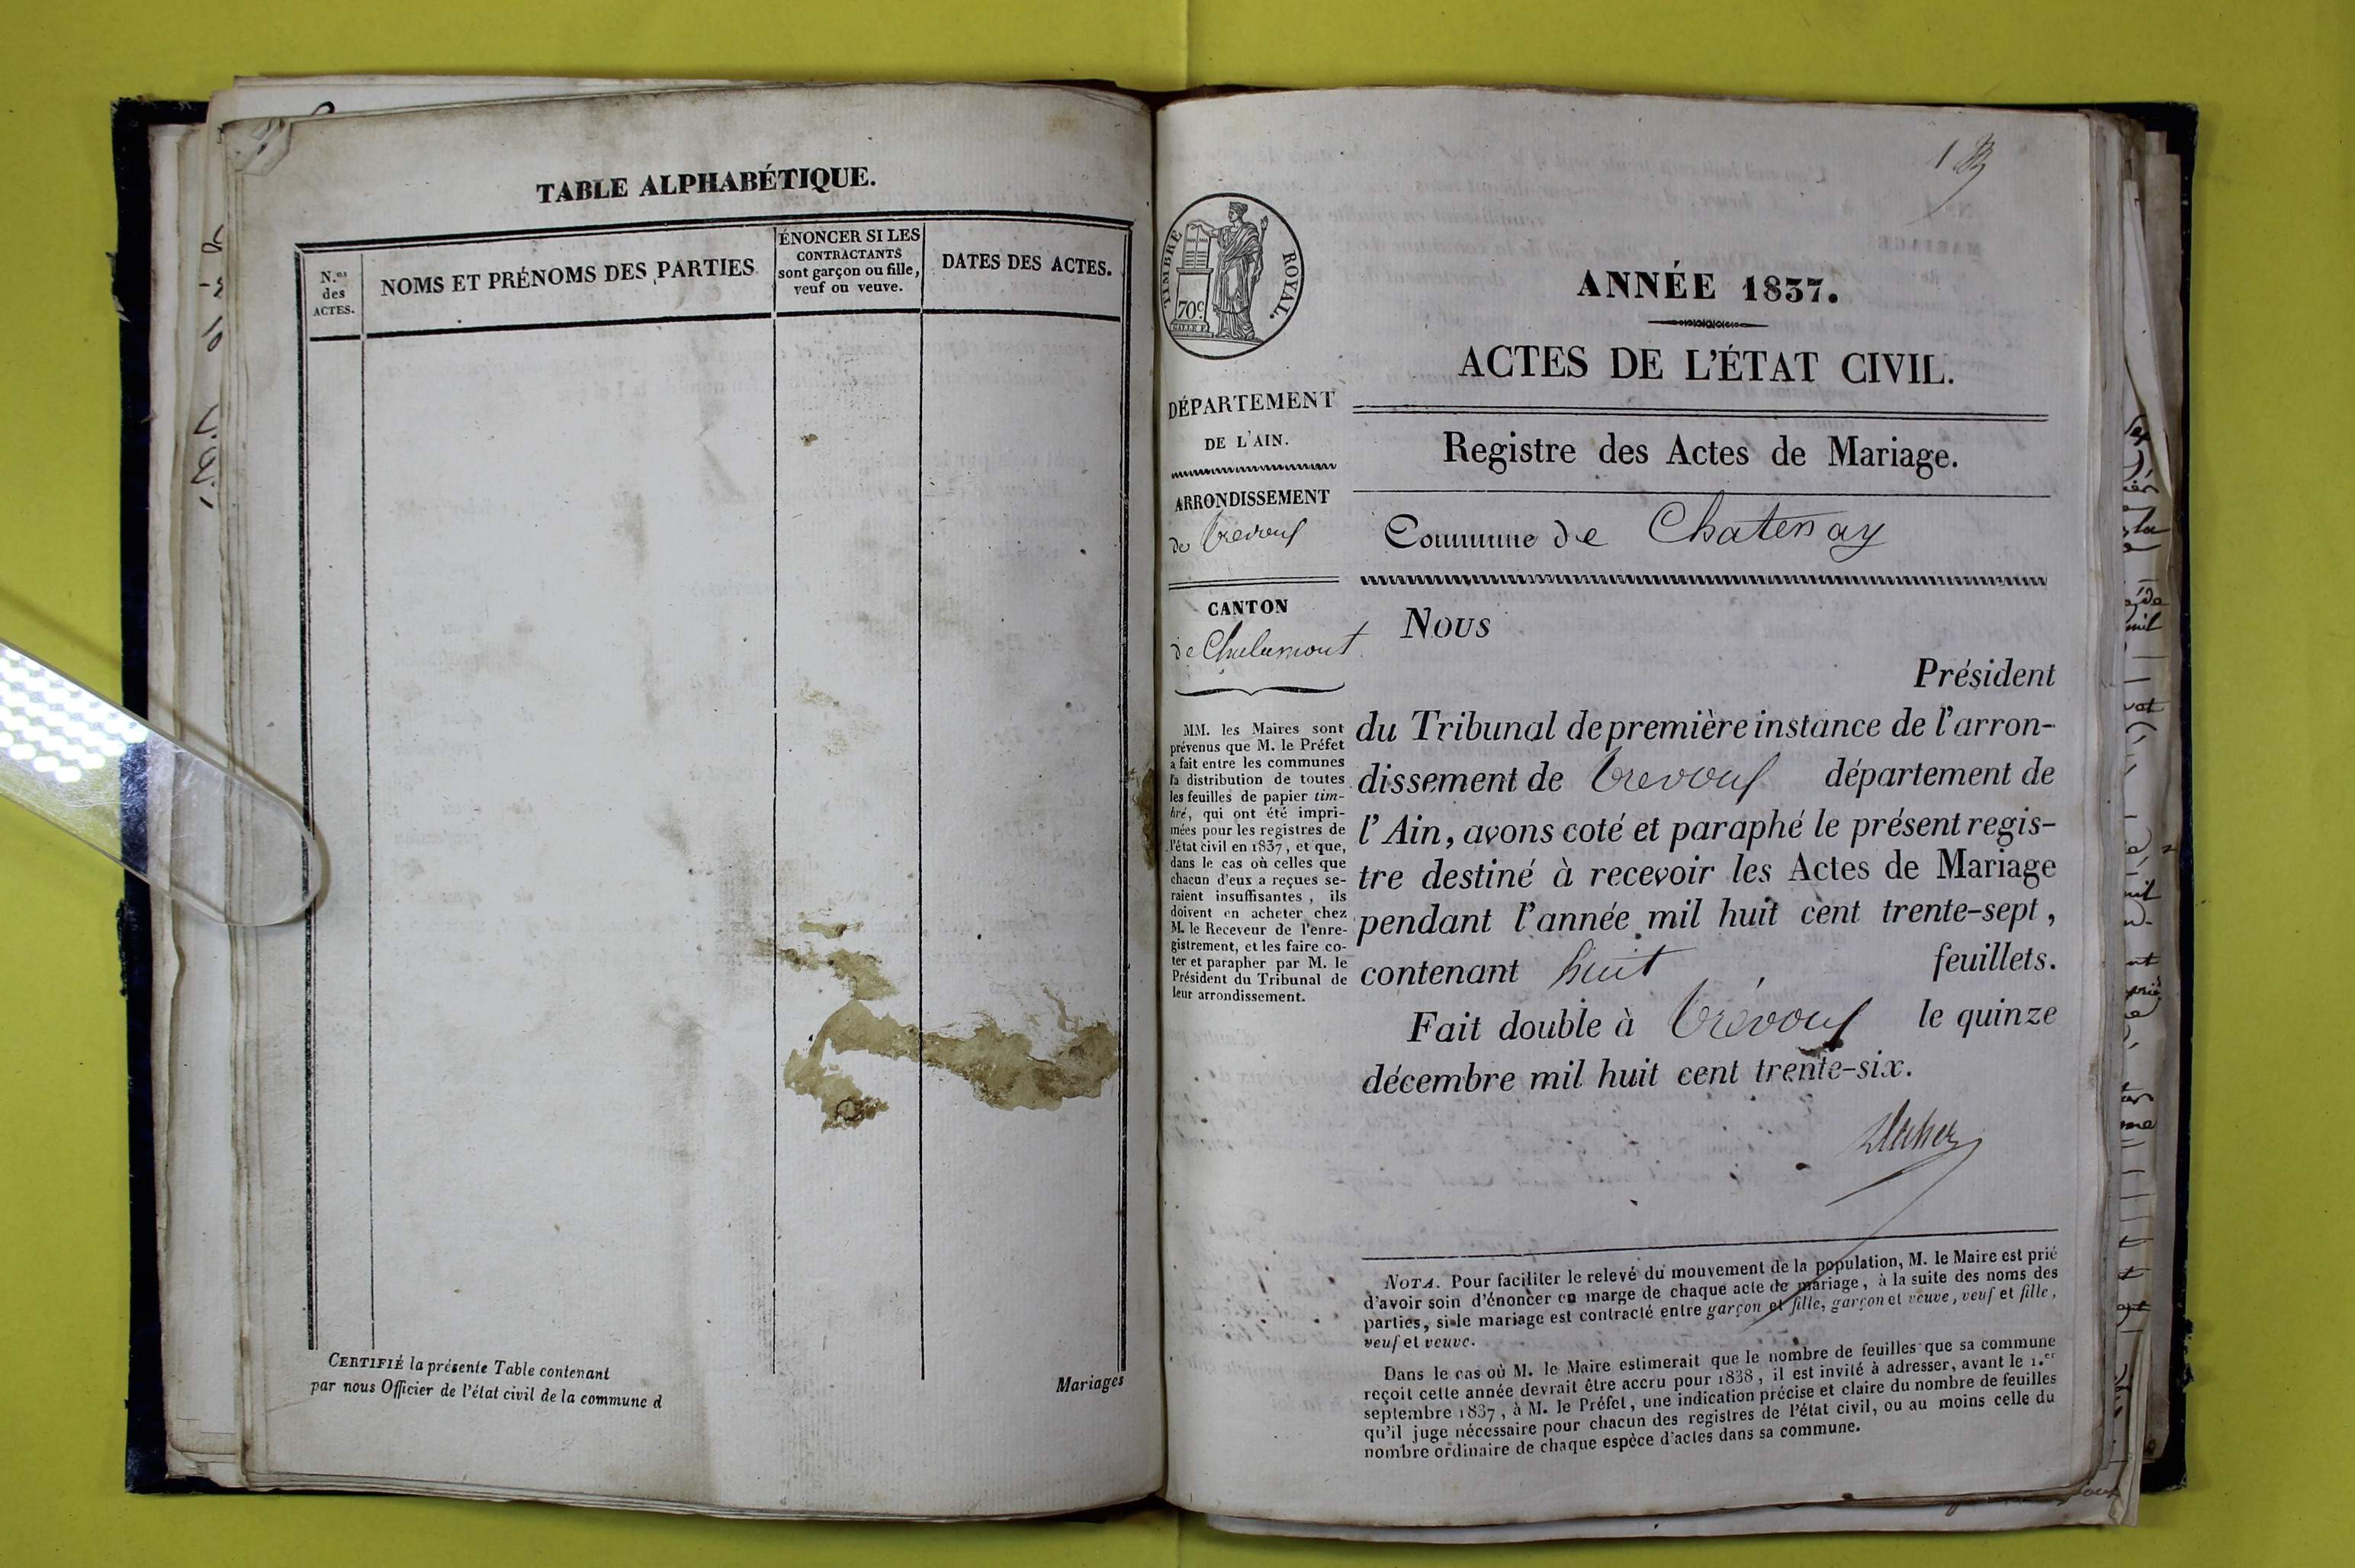 TABLE ALPHABÉTIQUE.
N.os
des
ACTES.
NOMS ET PRÉNOMS DES PARTIES
ÉNONCER SI LES
CONTRACTANTS
sont garçon ou fille,
veuf ou veuve.
DATES DES ACTES.
CERTIFIÉ la présente Table contenant
par nous Officier de l'état civil de la commune d
Mariages
1
TIMBRE ROYAL.
70c
DÉPARTEMENT
DE L'AIN.
ARRONDISSEMENT
de Trevoux
CANTON
de Chalamont
MM. les Maires sont
prévenus que M. le Préfet
a fait entre les communes
la distribution de toutes
les feuilles de papier tim-
bré, qui ont été impri-
mées pour les registres de
l'état civil en 1837, et que,
dans le cas où celles que
chacun d'eux a reçues se-
raient insuffisantes, ils
doivent en acheter chez
M. le Receveur de l'enre-
gistrement, et les faire co-
ter et parapher par M. le
Président du Tribunal de
leur arrondissement.
ANNÉE 1837.
ACTES DE L'ÉTAT CIVIL.
Registre des Actes de Mariage.
Commune de Chatenay
Nous
Président
du Tribunal de première instance de l'arron-
dissement de Trevoux département de
l'Ain, avons coté et paraphé le présent regis-
tre destiné à recevoir les Actes de Mariage
pendant l'année mil huit cent trente-sept,
contenant huit feuillets.
Fait double à Trévoux le quinze
décembre mil huit cent trente-six.
NOTA. Pour faciliter le relevé du mouvement de la population, M. le Maire est prié
d'avoir soin d'énoncer en marge de chaque acte de mariage, à la suite des noms des
parties, si le mariage est contracté entre garçon et fille, garçon et veuve, veuf et fille,
veuf et veuve.
Dans le cas où M. le Maire estimerait que le nombre de feuilles que sa commune
reçoit cette année devrait être accru pour 1838, il est invité à adresser, avant le 1.er
septembre 1837, à M. le Préfet, une indication précise et claire du nombre de feuilles
qu'il juge nécessaire pour chacun des registres de l'état civil, ou au moins celle du
nombre ordinaire de chaque espèce d'actes dans sa commune.